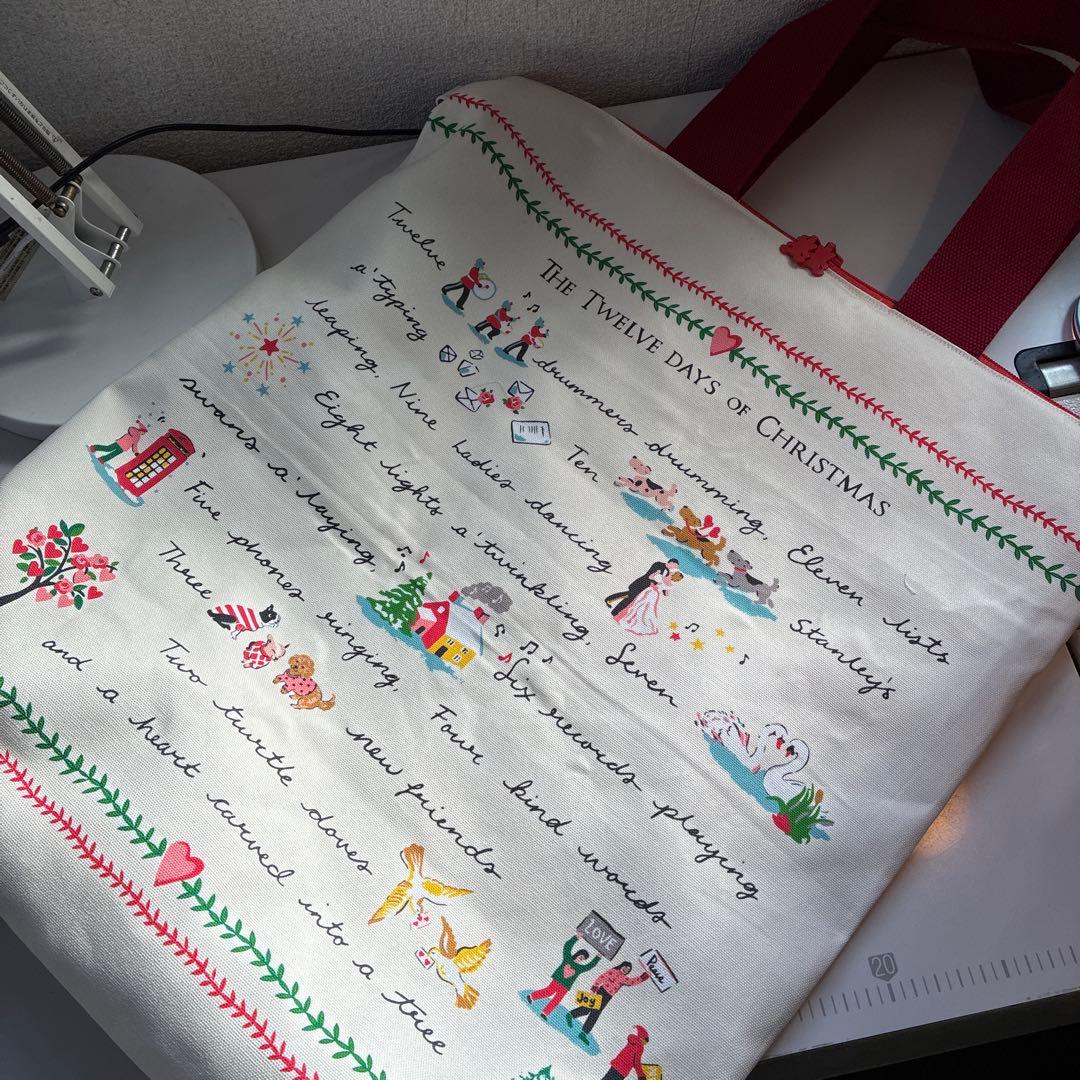 THE TWELVE DAYS OF CHRISTMAS
Twelve drummers drumming, Eleven lists
a'typing Ten Stanley's
leaping, Nine ladies dancing
Eight lights a'twinkling, Seven
swans a'laying, Six records playing
Five phones ringing, Four kind words
Three new friends
Two turtle doves
and a heart carved into a tree
LOVE
Peace
Joy
20